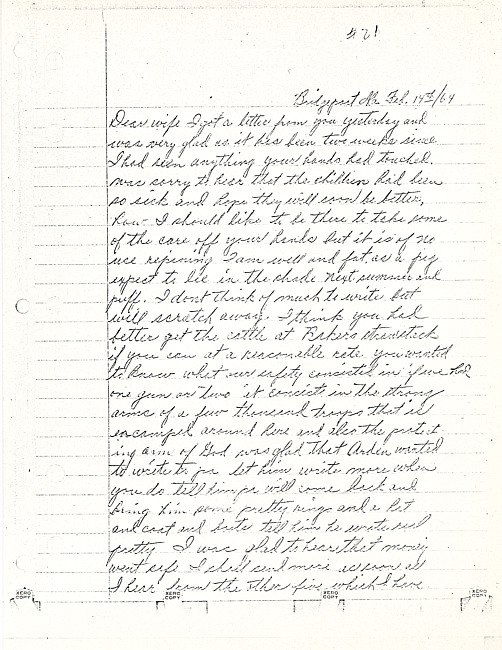 # 21
Bridgeport Ala Feb. 14th/64
Dear wife I got a letter from you yesterday and
was very glad as it has been two weeks since
I had seen anything your hands had touched.
was sorry to hear that the children had been
so sick and hope they will soon be better,
how I should like to be there to take some
of the care off your hands but it is of no
use repining I am well and fat as a pig
expect to lie in the shade next summer and
puff. I dont think of much to write but
will scratch away. I think you had
better get the cattle at Bakers strawstack
if you can at a reasonable rate you wanted
to know what our safety consisted in if we had
one gun or two it consist in the strong
arms of a few thousand troops that is
encamped around here and also the protect
ing arm of God was glad that Arden wanted
to write to pa let him write more when
you do tell him pa will come back and
bring him some pretty rings and a hat
and coat and boots tell him he wrote real
pretty I was glad to hear that money
went safe I shall send more as soon as
I hear from the other five which I have
XERO COPY XERO COPY XERO COPY XERO COPY